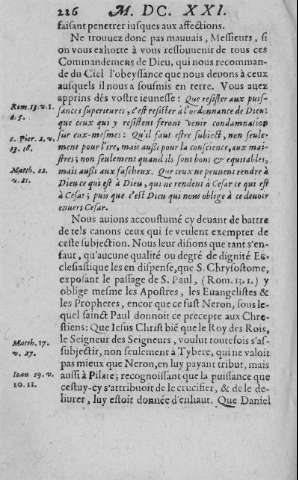 226 M. DC. XXI.
faisant penetrer iusques aux affections.
Ne trouuez donc pas mauuais, Messieurs, si
on vous exhorte à vous ressouuenir de tous ces
Commandemens de Dieu, qui nous recomman-
de du Ciel l'obeyssance que nous deuons à ceux
ausquels il nous a sousmis en terre. Vous auez
apprins dés vostre ieunesse: Que resister aux puis-
Rom. 13. v. 1.
sances superieures, c'est resister à l'ordonnance de Dieu:
2. 5.
que ceux qui y resistent feront venir condamnation
sur eux-mesmes: Qu'il faut estre subiect, non seule-
1. Pier. 2. v.
ment pour l'ire, mais aussi pour la conscience, aux mai-
13. 18.
stres; non seulement quand ils sont bons & equitables,
mais aussi aux fascheux. Que ceux ne peuuent rendre à
Matth. 22.
v. 21.
Dieu ce qui est à Dieu, qui ne rendent à Cesar ce qui est
à Cesar; puis que c'est Dieu qui nous oblige à ce deuoir
enuers Cesar.
Nous auions accoustumé cy deuant de battre
de tels canons ceux qui se veulent exempter de
ceste subiection. Nous leur disions que tant s'en-
faut, qu'aucune qualité ou degré de dignité Ec-
clesiastique les en dispense, que S. Chrysostome,
exposant le passage de S. Paul, (Rom. 13. 1.) y
oblige mesme les Apostres, les Euangelistes &
les Prophetes, encor que ce fust Neron, sous le-
quel sainct Paul donnoit ce precepte aux Chre-
stiens: Que Iesus Christ bié que le Roy des Rois,
le Seigneur des Seigneurs, voulut toutesfois s'as-
Matth. 17.
subiectir, non seulement à Tybere, qui ne valoit
v. 27.
pas mieux que Neron, en luy payant tribut, mais
aussi à Pilate; recognoissant que la puissance que
Iean 19. v.
10. 11.
cestuy-cy s'attribuoit de le crucifier, & de le de-
liurer, luy estoit donnée d'enhaut. Que Daniel